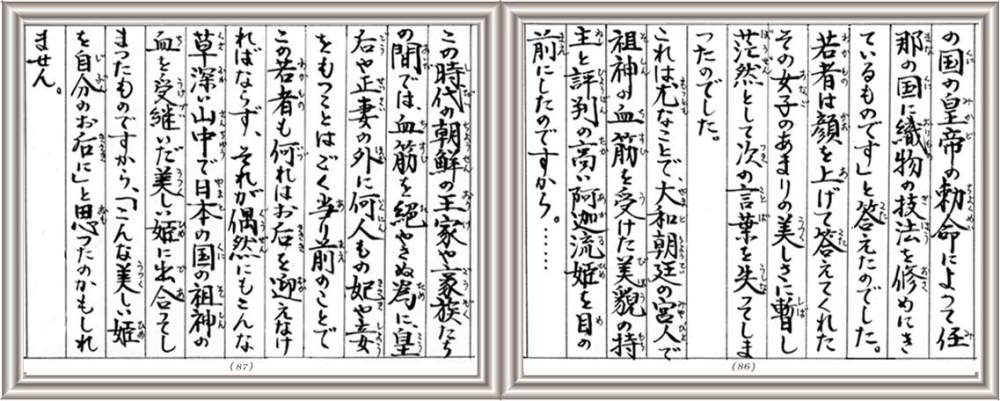 の国の皇帝の勅命によって任
那の国に織物の技法を修めにき
ているものです」と答えたのでした。
若者は顔を上げて答えてくれた
その女子のあまりの美しさに暫し
茫然として次の言葉を失ってしま
ったのでした。
これは尤なことで、大和朝廷の宮人で
祖神の血筋を受けた美貌の持
主と評判の高い阿迦流姫を目の
前にしたのですから。……
(86)
この時代の朝鮮の王家や豪族たち
の間では、血筋を絶やさぬ為に、皇
后や正妻の外に何人もの妃や妾
をもつことはごく当り前のことで
この若者も何れはお后を迎えなけ
ればならず、それが偶然にもこんな
草深い山中で日本の国の祖神の
血を受継いだ美しい姫に出合ってし
まったものですから、「こんな美しい姫
を自分のお后に」と思ったのかもしれ
ません。
(87)